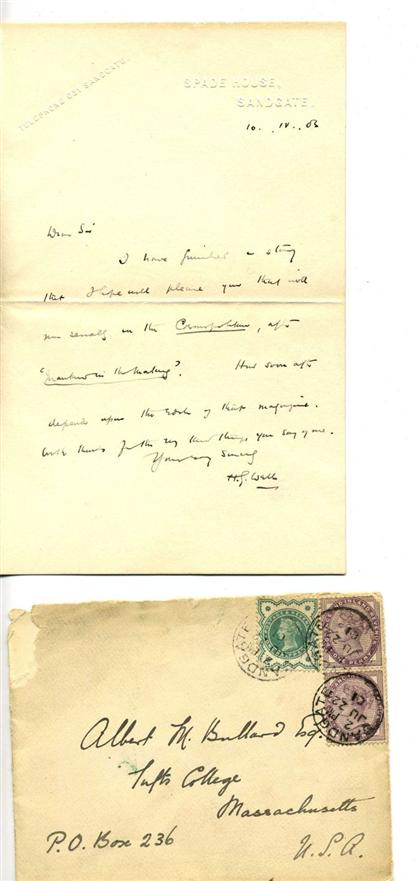 TELEPHONE 631 SANDGATE.
SPADE HOUSE,
SANDGATE.
10. IV. 03
Dear Sir
I have finished a story
that I hope will please you that will
run serially in the Cosmopolitan, after
"Mankind in the Making". How soon after
depends upon the Editor of that magazine.
With thanks for the very kind things you say of me.
Yours very sincerely
H.G. Wells
SANDGATE
SANDGATE
JU 22
01
Albert M. Bullard Esq.
Tufts College
Massachusetts
P.O. Box 236
U.S.A.